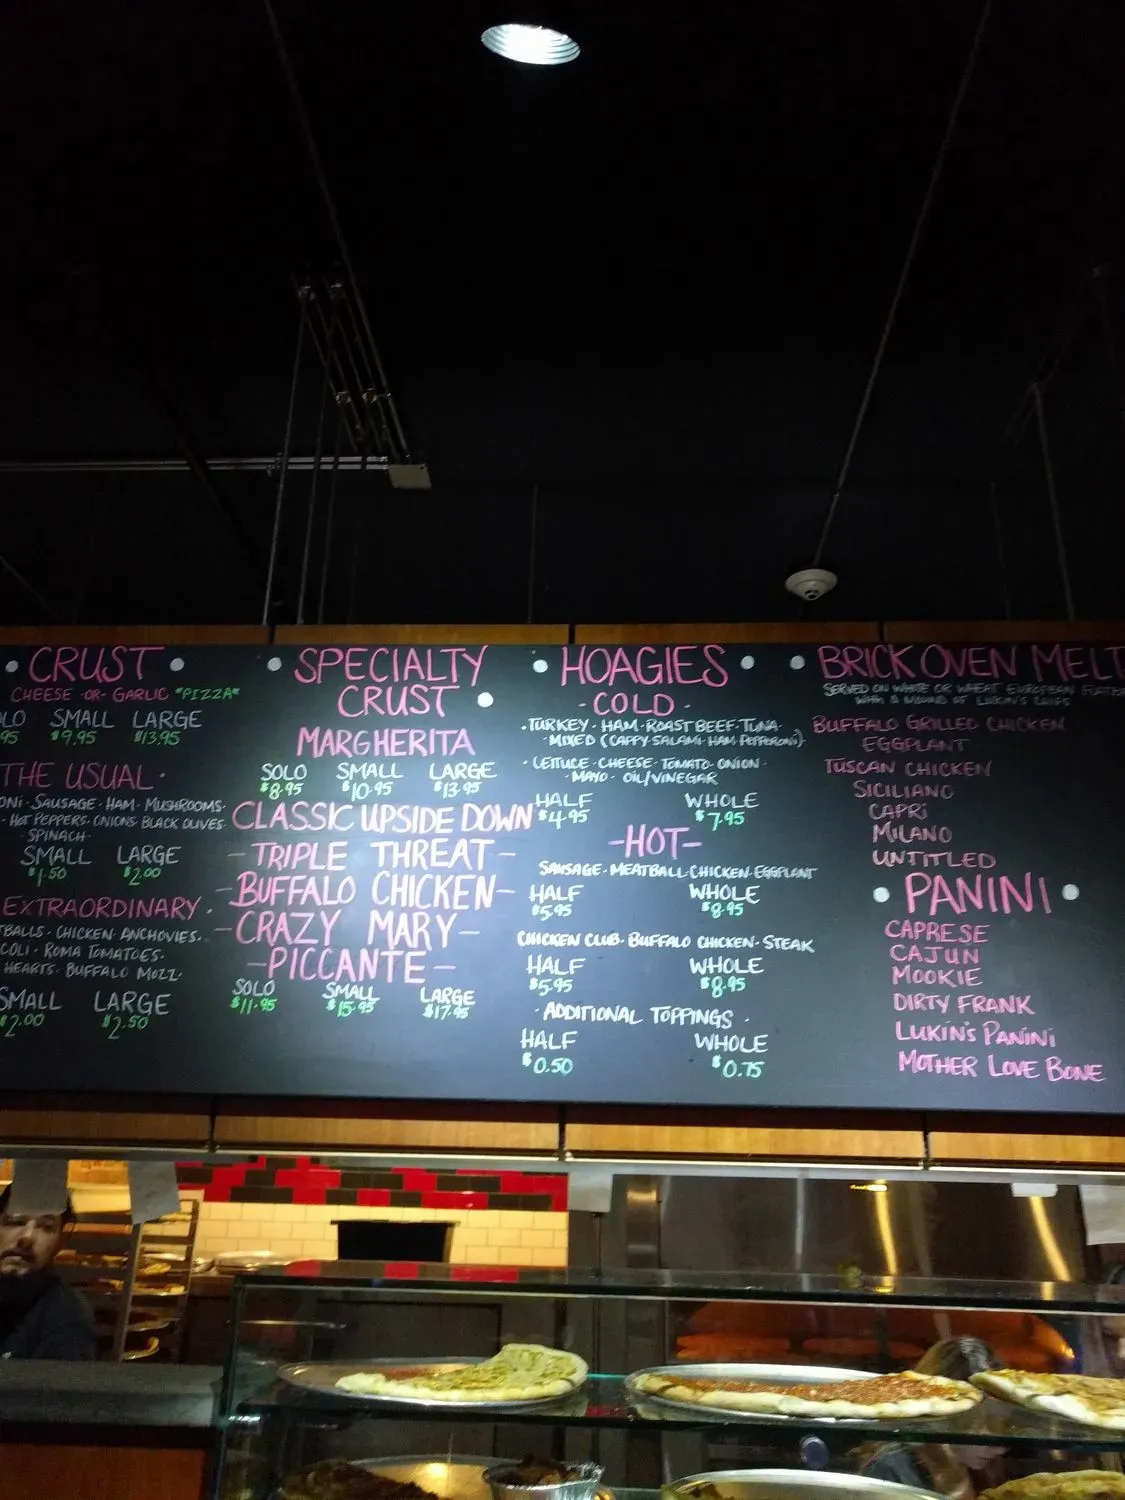 CRUST
CHEESE -OR- GARLIC *PIZZA*
SMALL LARGE
$9.95 $13.95
THE USUAL ·
SAUSAGE · HAM · MUSHROOMS ·
· HOT PEPPERS · ONIONS · BLACK OLIVES
· SPINACH ·
SMALL LARGE
$1.50 $2.00
EXTRAORDINARY ·
· CHICKEN · ANCHOVIES ·
· ROMA TOMATOES ·
HEARTS · BUFFALO MOZZ ·
SMALL LARGE
$2.00 $2.50
SPECIALTY
CRUST
MARGHERITA
SOLO SMALL LARGE
$8.95 $10.95 $13.95
CLASSIC UPSIDE DOWN
- TRIPLE THREAT -
- BUFFALO CHICKEN -
- CRAZY MARY -
- PICCANTE -
SOLO SMALL LARGE
$11.95 $15.95 $17.95
HOAGIES
- COLD -
· TURKEY · HAM · ROAST BEEF · TUNA ·
· MIXED (CAPPY · SALAMI · HAM · PEPPERONI)
· LETTUCE · CHEESE · TOMATO · ONION ·
· MAYO · OIL/VINEGAR
HALF WHOLE
$4.95 $7.95
- HOT -
SAUSAGE · MEATBALL · CHICKEN · EGGPLANT
HALF WHOLE
$5.95 $8.95
CHICKEN CLUB · BUFFALO CHICKEN · STEAK
HALF WHOLE
$5.95 $8.95
· ADDITIONAL TOPPINGS ·
HALF WHOLE
$0.50 $0.75
BRICK OVEN MELT
SERVED ON WHITE OR WHEAT EUROPEAN
WITH A MOUND OF LUKIN'S CHIPS
BUFFALO GRILLED CHICKEN
EGGPLANT
TUSCAN CHICKEN
SICILIANO
CAPRI
MILANO
UNTITLED
PANINI
CAPRESE
CAJUN
MOOKIE
DIRTY FRANK
LUKIN'S PANINI
MOTHER LOVE BONE